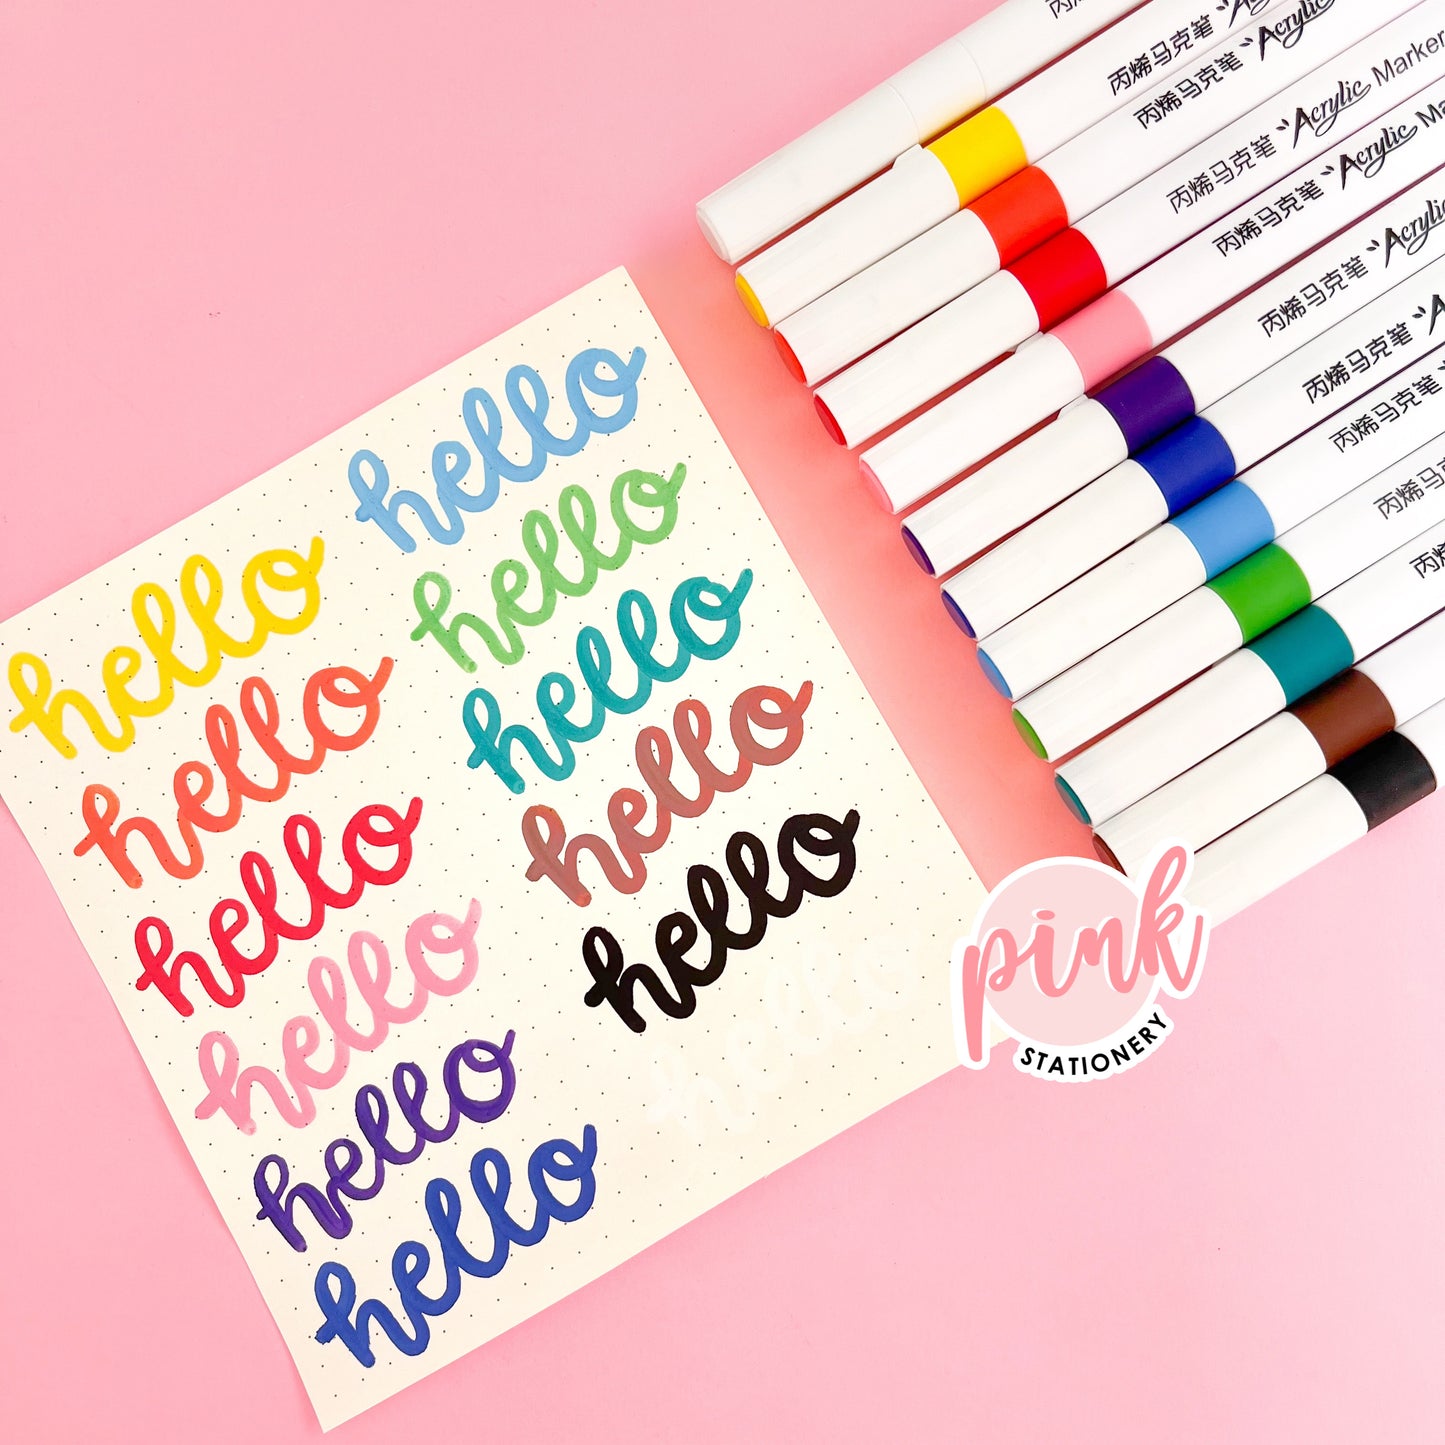 丙烯马克笔
丙烯马克笔 Acrylic
丙烯马克笔 Acrylic Marker
丙烯马克笔 Acrylic Ma
丙烯马克笔 Acrylic
丙烯马克笔
丙烯马克笔
丙烯马克
丙烯
hello
hello
hello
hello
hello
hello
hello
hello
hello
hello
hello
hello
pink
STATIONERY